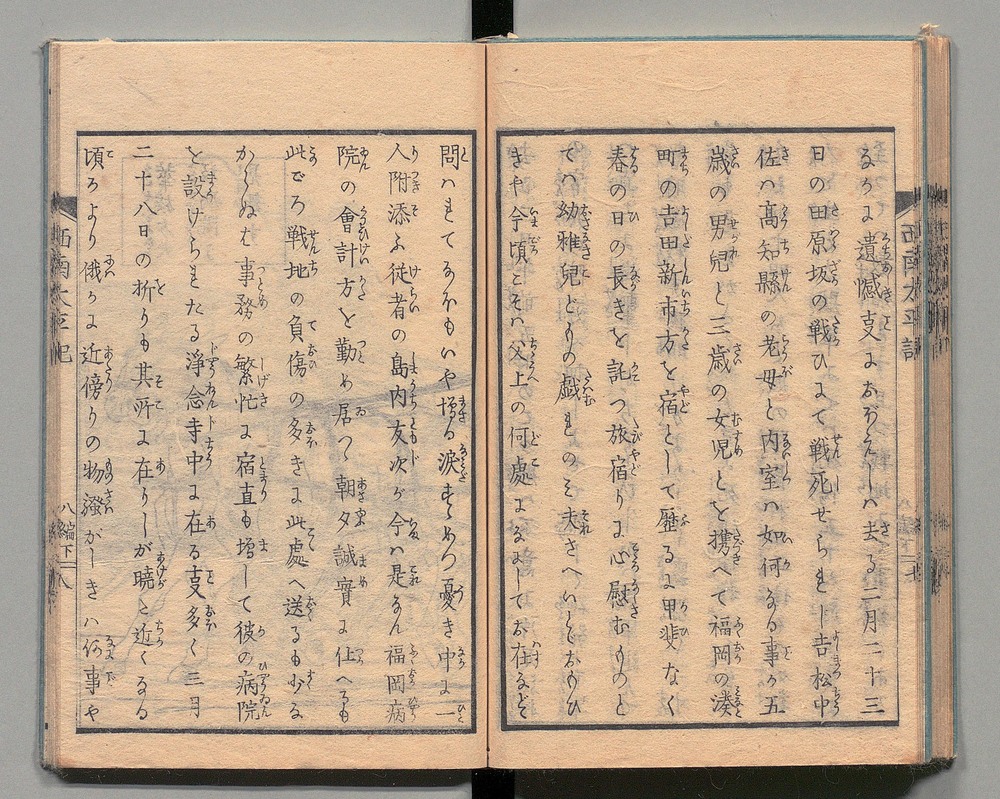 るかに遺憾支におぼえしハ去る二月二十三
日の田原坂の戦ひにて戦死せられし吉松中
佐ハ高知縣の老母と内室ハ如何なる事か五
歳の男兒と三歳の女児とを携へて福岡の湊
町の吉田新市方を宿として歴るに甲斐なく
春の日の長きを託つ旅宿りに心慰むものと
てハ幼稚兒どもの戯れのミ夫さへいとおもひ
きや今頃こそハ父上の何處になにしてお在など
問ハれてなほもいや増る涙すゝめつ憂き中に一
人附添ふ従者の島内友次が今ハ是なん福岡病
院の會計方を勤め居つ朝夕誠實に仕へるも
此ごろ戦地の負傷の多きに此處へ送るも少な
からぬは事務の繁忙に宿直も増して彼の病院
を設けられたる淨念寺中に在る支多く三月
二十八日の折りも其所に在りしが暁き近くなる
頃ろより俄かに近傍りの物騒がしきハ何事や
西南太平記
八編下
八
西南太平記